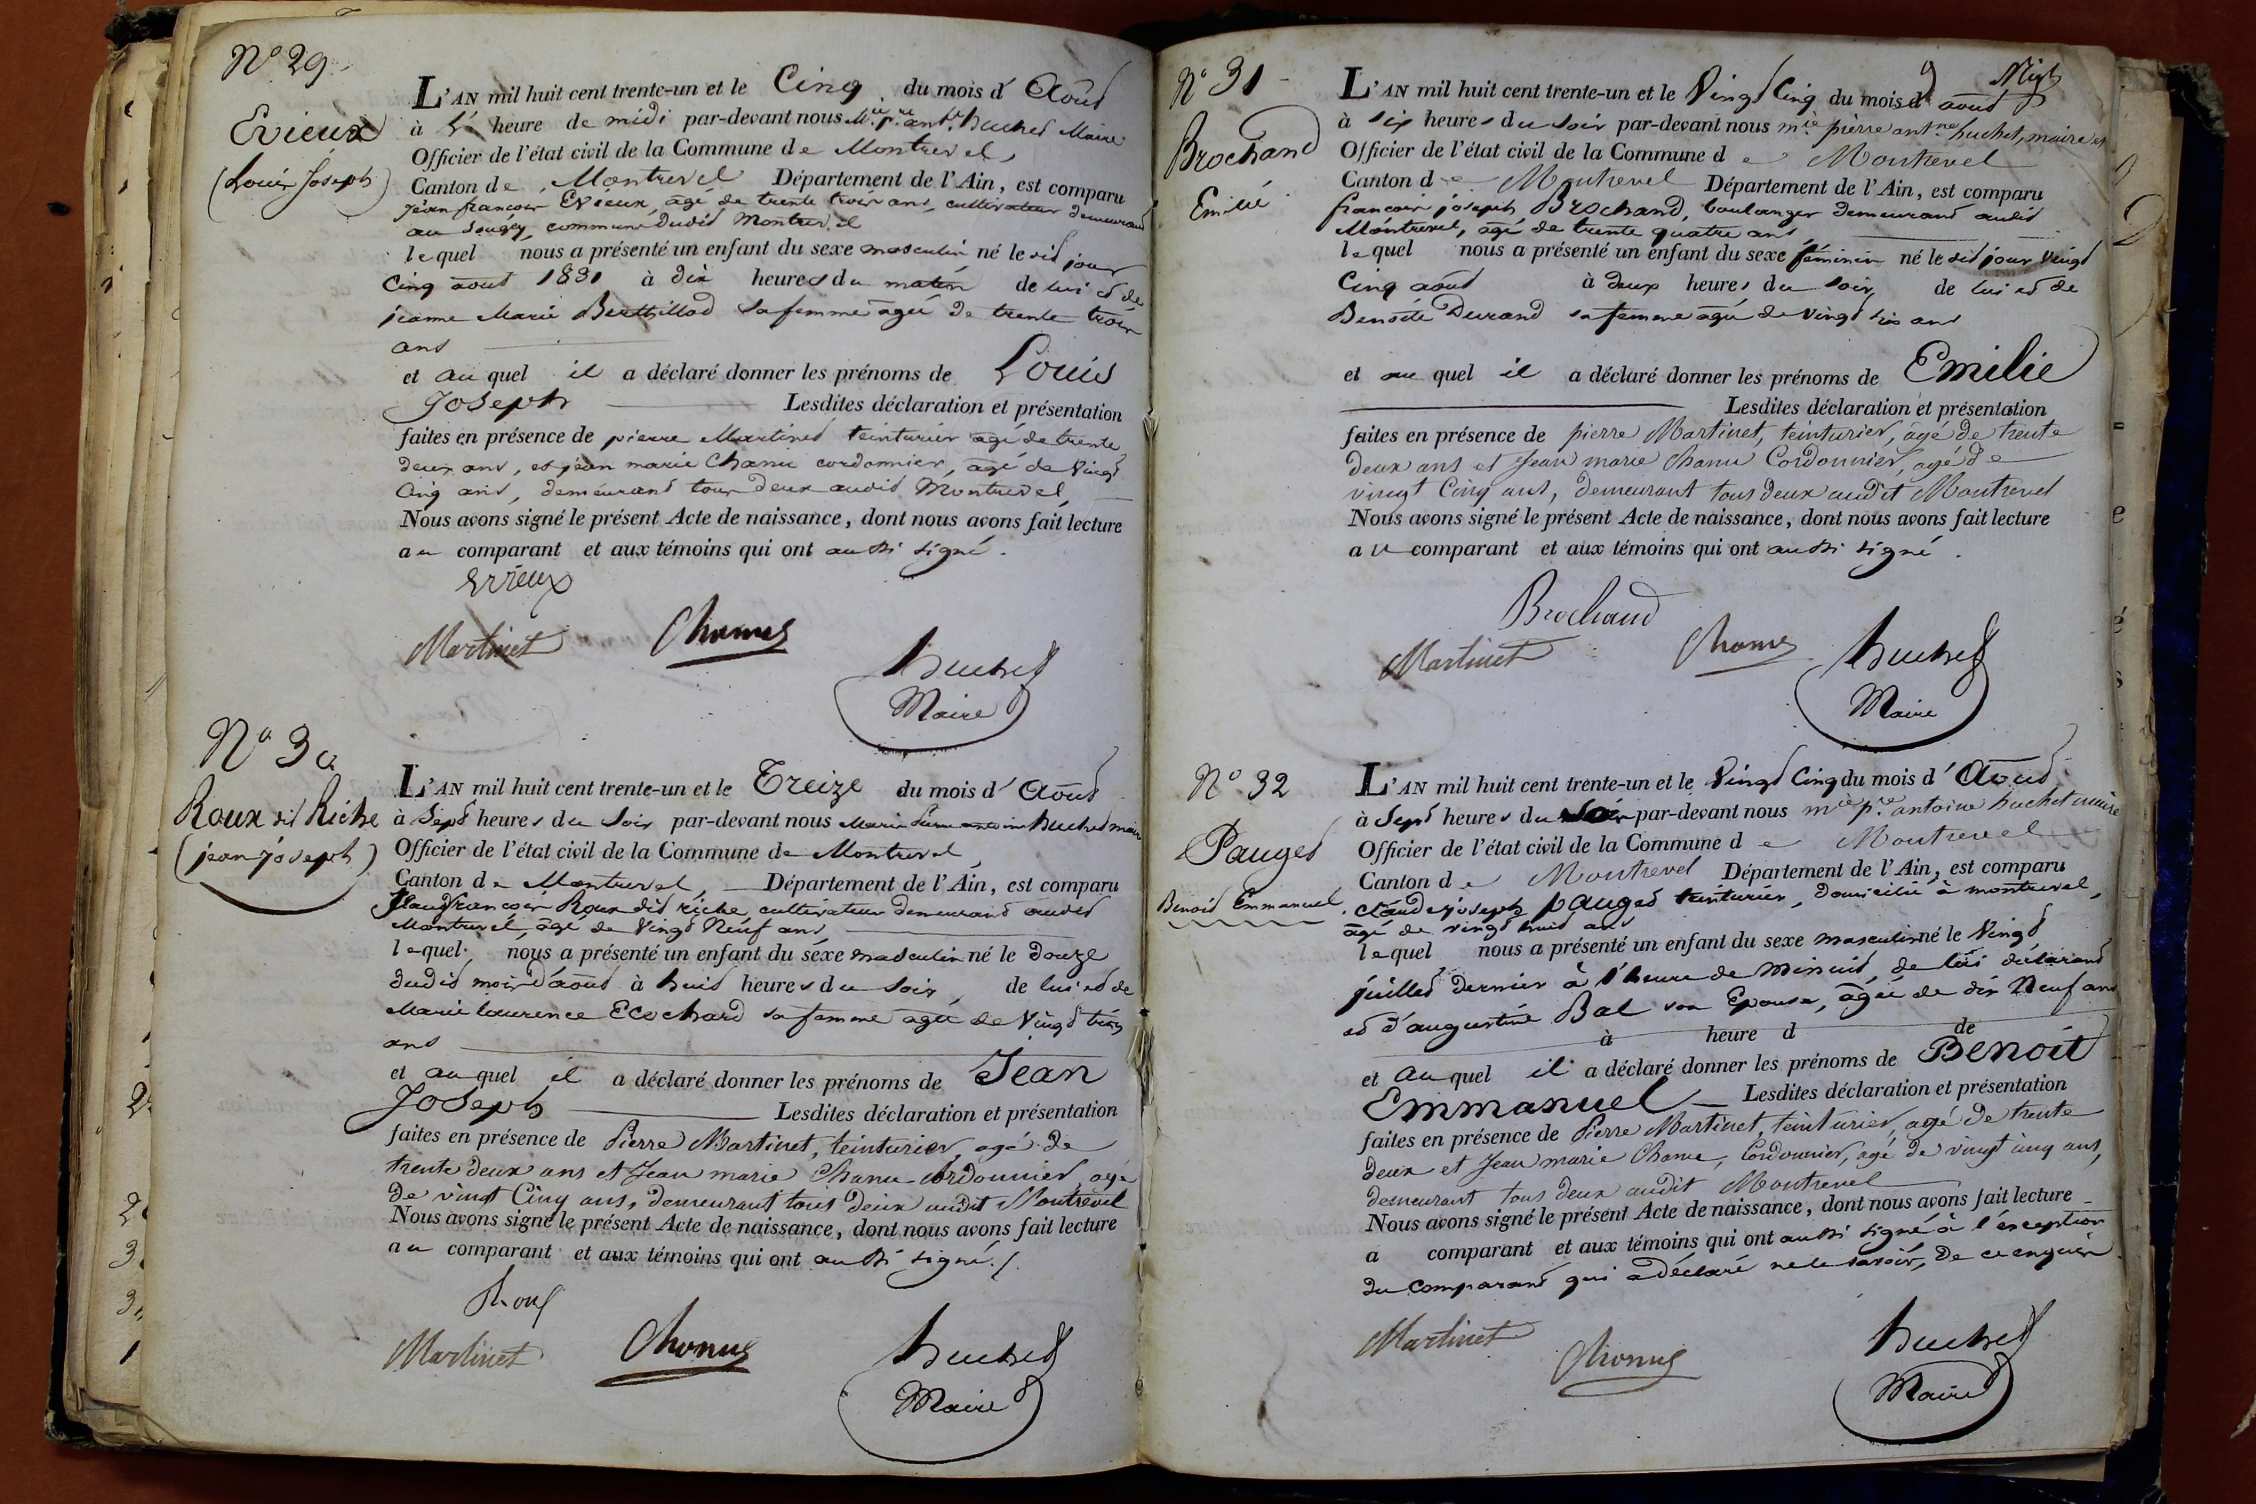 N° 29
Evieux
(Louis Joseph)
L'AN mil huit cent trente-un et le Cinq du mois d' Août
à L' heure de midi par-devant nous M.ie p.re ant.e huchet Maire
Officier de l'état civil de la Commune de Montrevel
Canton de Montrevel Département de l'Ain, est comparu
jean françois Evieux, âgé de trente trois ans, cultivateur demeurant
au Sougey, commune dudit Montrevel
lequel nous a présenté un enfant du sexe masculin né le dit jour
Cinq août 1831 à dix heures du matin de lui et de
jeanne Marie Berthillod sa femme âgée de trente trois
ans
et au quel il a déclaré donner les prénoms de Louis
Joseph Lesdites déclaration et présentation
faites en présence de pierre Martinet teinturier âgé de trente
deux ans, et jean marie Chanu cordonnier, âgé de vingt
Cinq ans, demeurant tous deux audit Montrevel,
Nous avons signé le présent Acte de naissance, dont nous avons fait lecture
au comparant et aux témoins qui ont aussi signé.
Evieux
Martinet Chanus
huchet
Maire
N° 30
Roux dit Riche
(jean joseph)
L'AN mil huit cent trente-un et le Treize du mois d' Août
à Sept heures du Soir par-devant nous Marie pierre antoine huchet maire
Officier de l'état civil de la Commune de Montrevel,
Canton de Montrevel, Département de l'Ain, est comparu
françois Roux dit riche, cultivateur demeurant audit
Montrevel, âgé de vingt Neuf ans
lequel nous a présenté un enfant du sexe masculin né le douze
dudit mois d'août à huit heures du soir, de lui et de
Marie laurence Ecochard sa femme âgée de vingt trois
ans
et au quel il a déclaré donner les prénoms de Jean
Joseph Lesdites déclaration et présentation
faites en présence de Pierre Martinet, teinturier, agé de
trente deux ans et Jean marie Chanu Cordonnier, agé
de vingt Cinq ans, demeurant tous deux audit Montrevel
Nous avons signé le présent Acte de naissance, dont nous avons fait lecture
au comparant et aux témoins qui ont aussi signé./.
Roux
Martinet Chanus
huchet
Maire
N° 31
Brochand
Emilie
L'AN mil huit cent trente-un et le Vingt Cinq du mois d' août
à six heures du soir par-devant nous m.ie pierre ant.ne huchet, maire et
Officier de l'état civil de la Commune de Montrevel
Canton de Montrevel Département de l'Ain, est comparu
françois joseph Brochand, boulanger demeurant audit
Montrevel, âgé de trente quatre ans,
lequel nous a présenté un enfant du sexe féminin né le dit jour vingt
Cinq août à deux heures du soir, de lui et de
Benoîte Durand sa femme âgée de vingt six ans
et au quel il a déclaré donner les prénoms de Emilie
Lesdites déclaration et présentation
faites en présence de pierre Martinet, teinturier, âgé de trente
deux ans et Jean marie Chanu Cordonnier, agé de
vingt Cinq ans, demeurant tous deux audit Montrevel
Nous avons signé le présent Acte de naissance, dont nous avons fait lecture
au comparant et aux témoins qui ont aussi signé.
Brochand
Martinet Chanus huchet
Maire
N° 32
Pauget
Benoit Emmanuel
L'AN mil huit cent trente-un et le Vingt Cinq du mois d' Août
à Sept heures du Soir par-devant nous m.ie p.re antoine huchet maire
Officier de l'état civil de la Commune de Montrevel
Canton de Montrevel Département de l'Ain, est comparu
claude joseph pauget teinturier, domicilié à montrevel,
âgé de vingt huit ans
lequel nous a présenté un enfant du sexe masculin né le Vingt
juillet dernier à l'heure de Minuit, de lui déclarant
et d'augustine Bal son Epouse, âgée de dix Neuf ans
à heure d de
et au quel il a déclaré donner les prénoms de Benoit
Emmanuel Lesdites déclaration et présentation
faites en présence de Pierre Martinet, teinturier, agé de trente
deux et Jean marie Chanu, Cordonnier, agé de vingt cinq ans,
demeurant tous deux audit Montrevel
Nous avons signé le présent Acte de naissance, dont nous avons fait lecture
a comparant et aux témoins qui ont aussi signé à l'exception
du comparant qui a déclaré ne le savoir, de ce enquis.
Martinet Chanus huchet
Maire